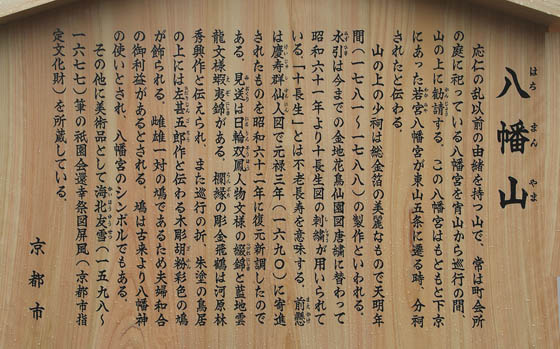 八幡山
はち まん やま
応仁の乱以前の由緒を持つ山で、常は町会所
の庭に祀っている八幡宮を宵山から巡行の間、
山の上に勧請する。この八幡宮はもともと下京
にあった若宮八幡宮が東山五条に遷る時、分祠
されたと伝わる。
山の上の小祠は総金箔の美麗なもので天明年
間(一七八一〜一七八八)の製作といわれる。
水引は今までの金地花鳥仙園図唐繍に替わって
昭和六十一年より十長生図の刺繍が用いられて
いる。「十長生」とは不老長寿を意味する。前懸
は慶寿群仙人図で元禄三年(一六九〇)に寄進
されたものを昭和六十二年に復元新調したので
ある。見送は日輪双鳳人物文様の綴錦と藍地雲
龍文様蝦夷錦がある。欄縁の彫金飛鶴は河原林
秀興作と伝えられ、また巡行の折、朱塗の鳥居
の上には左甚五郎作と伝わる木彫胡粉彩色の鳩
が飾られる。雌雄一対の鳩であるため夫婦和合
の御利益があるとされる。鳩は古来より八幡神
の使いとされ、八幡宮のシンボルでもある。
その他に美術品として海北友雪(一五九八〜
一六七七)筆の祇園会還幸祭図屏風(京都市指
定文化財)を所蔵している。
京都市